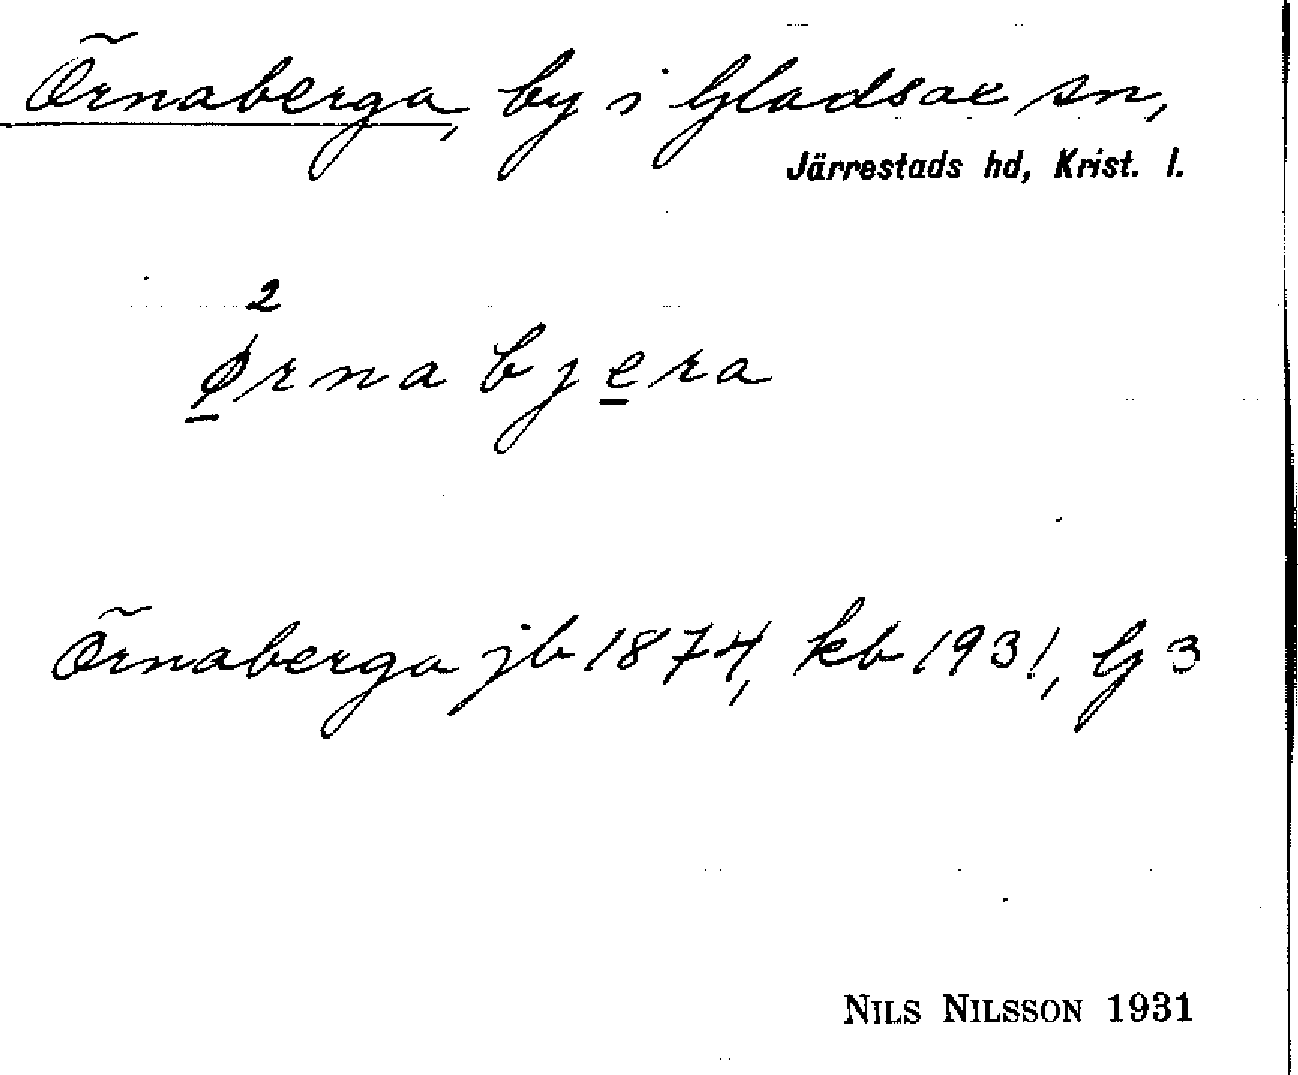 Örnaberga, by i Gladsax sn,
Järrestads hd, Krist. l.
2
Ørnabjera
Örnaberga jb 1874, kb 1931, G 3
NILS NILSSON 1931